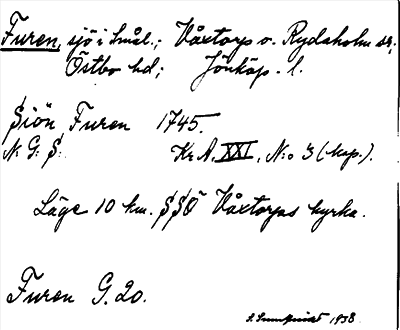 Furen, sjö i Smål.; Våxtorps o. Rydaholm sr;
Östbo hd; Jönköp. l.
Siön Furen 1745.
N: G: S:
Kr A, XXI, N:o 3 (kop.).
Läge 10 km. SSÖ Våxtorps kyrka.
Furen G. 20.
1938